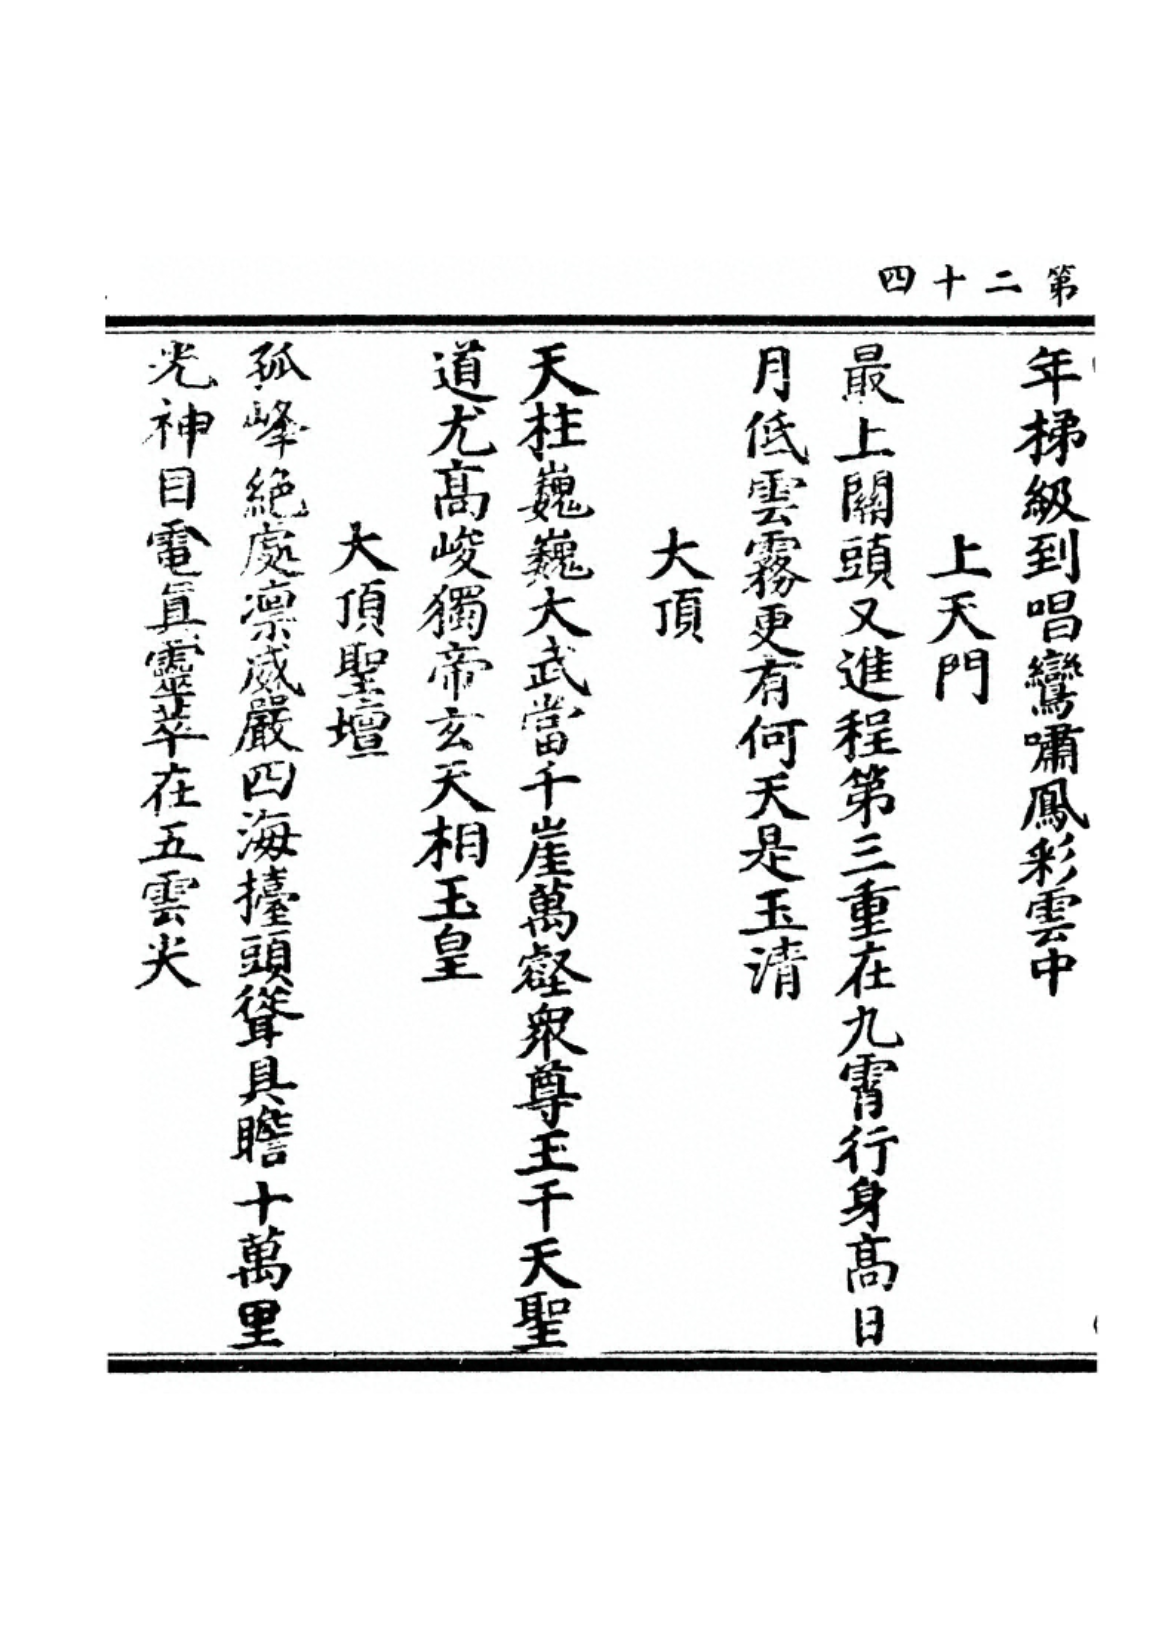 第二十四
年梯級到唱鸞嘯鳳彩雲中
上天門
最上關頭又進程第三重在九霄行身高日
月低雲霧更有何天是玉清
大頂
天柱巍巍大武當千崖萬壑衆尊王千天聖
道尤高峻獨帝玄天相玉皇
大頂聖壇
孤峰絕處凛威嚴四海擡頭聳具瞻十萬里
光神目電眞靈萃在五雲尖